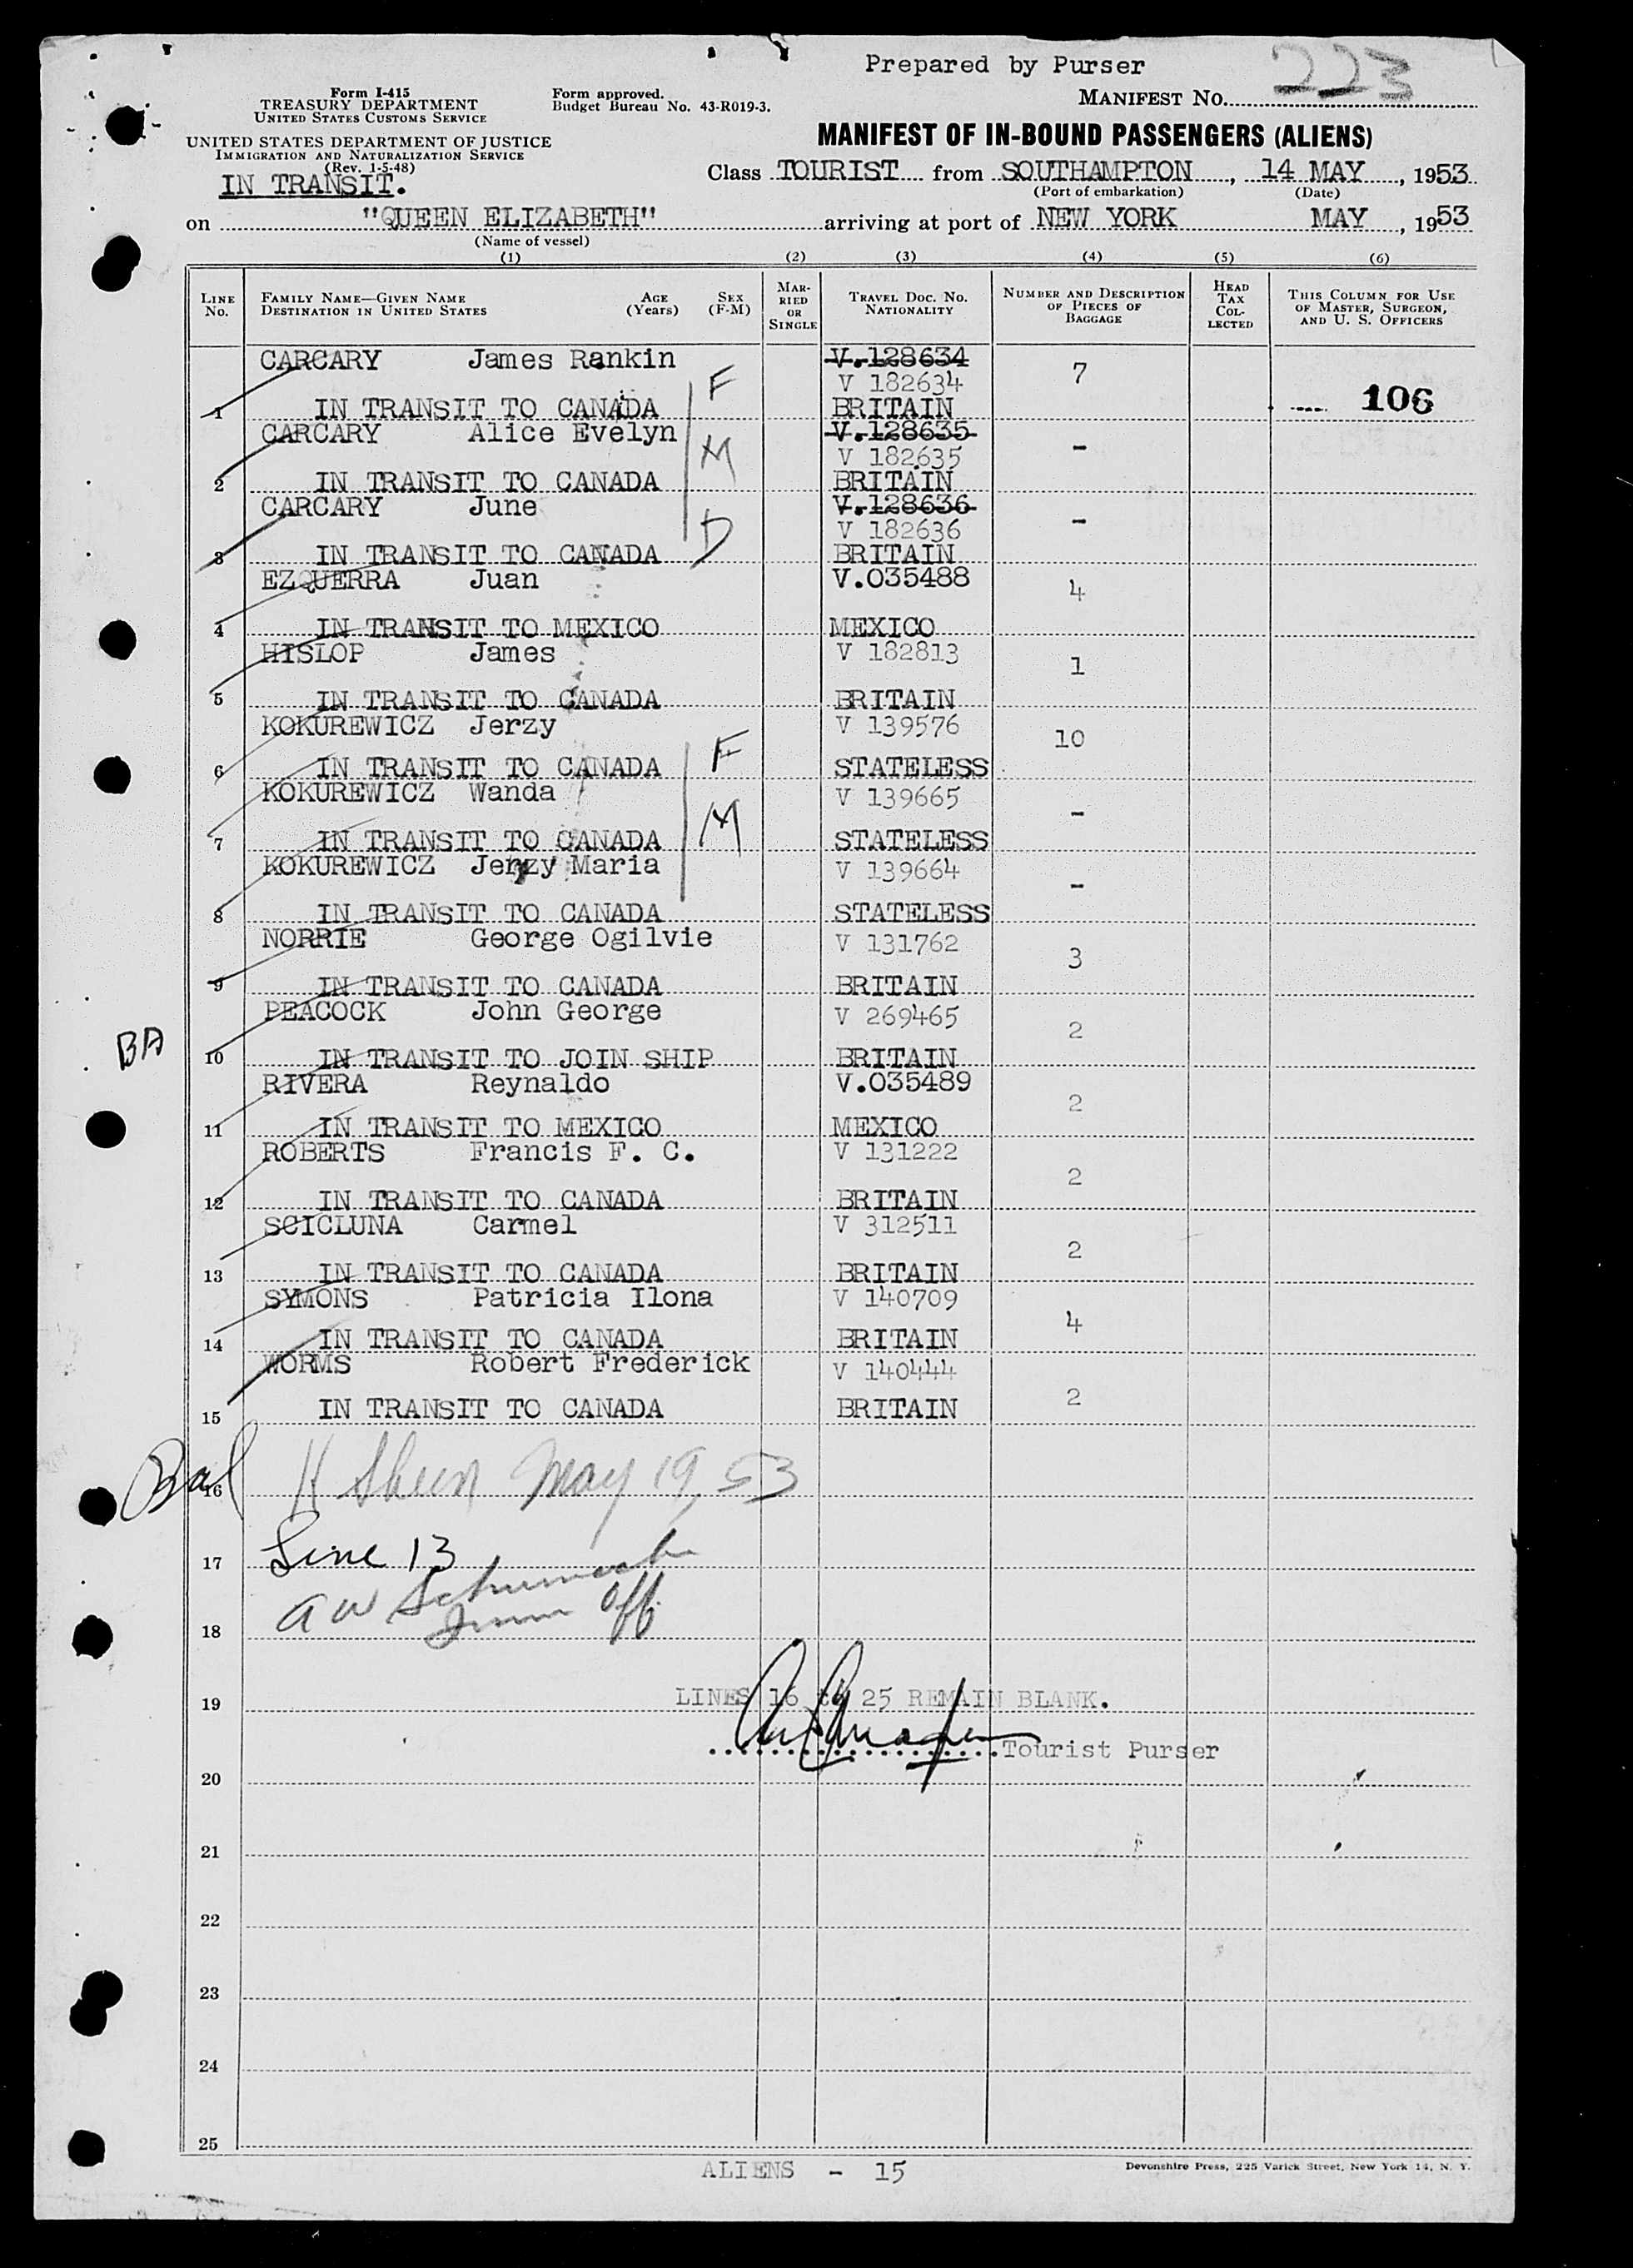 Prepared by Purser
223
Form I-415
TREASURY DEPARTMENT
UNITED STATES CUSTOMS SERVICE
Form approved.
Budget Bureau No. 43-R019-3.
MANIFEST No.
UNITED STATES DEPARTMENT OF JUSTICE
IMMIGRATION AND NATURALIZATION SERVICE
(Rev. 1-5-48)
MANIFEST OF IN-BOUND PASSENGERS (ALIENS)
IN TRANSIT.
Class TOURIST from SOUTHAMPTON, 14 MAY, 1953
(Port of embarkation) (Date)
on "QUEEN ELIZABETH" arriving at port of NEW YORK MAY, 1953
(Name of vessel)
(1) (2) (3) (4) (5) (6)
LINE No.
FAMILY NAME—GIVEN NAME
DESTINATION IN UNITED STATES
AGE (Years)
SEX (F-M)
MARRIED OR SINGLE
TRAVEL DOC. NO. NATIONALITY
NUMBER AND DESCRIPTION OF PIECES OF BAGGAGE
HEAD TAX COLLECTED
THIS COLUMN FOR USE OF MASTER, SURGEON, AND U. S. OFFICERS
CARCARY James Rankin V.128634
V 182634 7
F
1 IN TRANSIT TO CANADA BRITAIN 106
CARCARY Alice Evelyn V.128635
M V 182635 -
2 IN TRANSIT TO CANADA BRITAIN
CARCARY June V.128636
D V 182636 -
3 IN TRANSIT TO CANADA BRITAIN
EZQUERRA Juan V.035488 4
4 IN TRANSIT TO MEXICO MEXICO
HISLOP James V 182813 1
5 IN TRANSIT TO CANADA BRITAIN
KOKUREWICZ Jerzy V 139576 10
F
6 IN TRANSIT TO CANADA STATELESS
KOKUREWICZ Wanda V 139665 -
M
7 IN TRANSIT TO CANADA STATELESS
KOKUREWICZ Jerzy Maria V 139664 -
8 IN TRANSIT TO CANADA STATELESS
NORRIE George Ogilvie V 131762 3
9 IN TRANSIT TO CANADA BRITAIN
PEACOCK John George V 269465 2
BA
10 IN TRANSIT TO JOIN SHIP BRITAIN
RIVERA Reynaldo V.035489 2
11 IN TRANSIT TO MEXICO MEXICO
ROBERTS Francis F. C. V 131222 2
12 IN TRANSIT TO CANADA BRITAIN
SCICLUNA Carmel V 312511 2
13 IN TRANSIT TO CANADA BRITAIN
SYMONS Patricia Ilona V 140709 4
14 IN TRANSIT TO CANADA BRITAIN
WORMS Robert Frederick V 140444 2
15 IN TRANSIT TO CANADA BRITAIN
Bal
16 May 19, 53
17 Line 13
18 Off
19 LINES 16 to 25 REMAIN BLANK.
Tourist Purser
20
21
22
23
24
25
ALIENS - 15
Devonshire Press, 225 Varick Street, New York 14, N. Y.